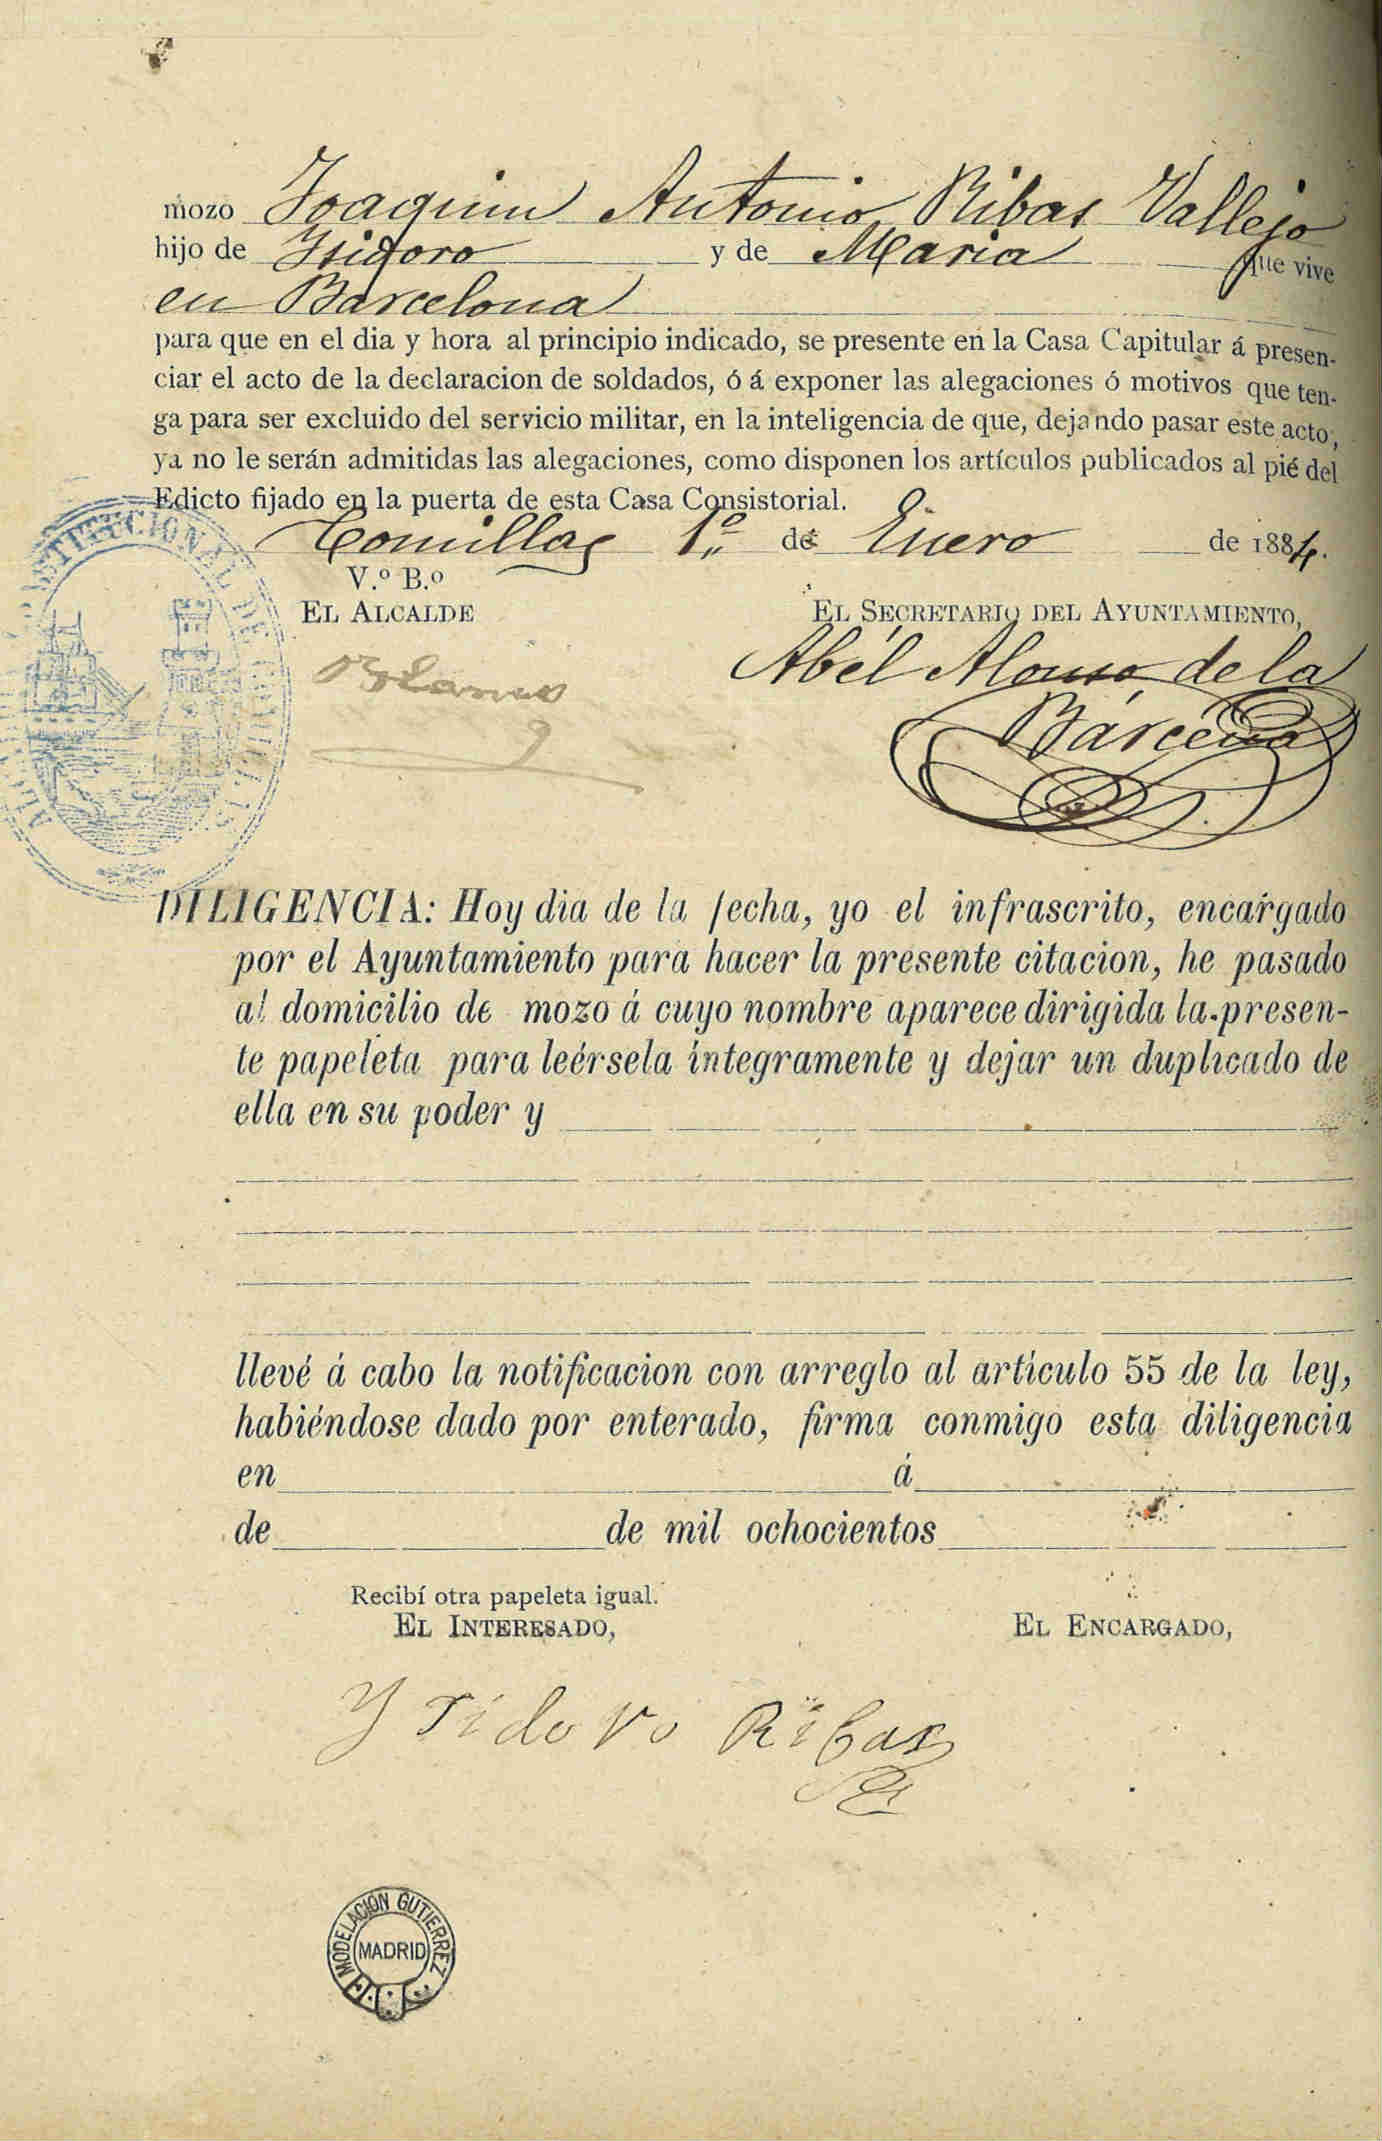 mozo Joaquin Antonio Ribas Vallejo
hijo de Isidoro y de Maria que vive
en Barcelona
para que en el dia y hora al principio indicado, se presente en la Casa Capitular á presen-
ciar el acto de la declaracion de soldados, ó á exponer las alegaciones ó motivos que ten-
ga para ser excluido del servicio militar, en la inteligencia de que, dejando pasar este acto,
ya no le serán admitidas las alegaciones, como disponen los artículos publicados al pié del
Edicto fijado en la puerta de esta Casa Consistorial.
Comillas 1º de Enero de 1884.
V.º B.º
EL ALCALDE
EL SECRETARIO DEL AYUNTAMIENTO,
Abél Alonso de la
Bárcena
DILIGENCIA: Hoy dia de la fecha, yo el infrascrito, encargado
por el Ayuntamiento para hacer la presente citacion, he pasado
al domicilio de mozo á cuyo nombre aparece dirigida la presen-
te papeleta para leérsela íntegramente y dejar un duplicado de
ella en su poder y
llevé á cabo la notificacion con arreglo al artículo 55 de la ley,
habiéndose dado por enterado, firma conmigo esta diligencia
en á
de de mil ochocientos
Recibí otra papeleta igual.
EL INTERESADO,
EL ENCARGADO,
Ysidoro Ribas
MODELACION GUTIERREZ
MADRID